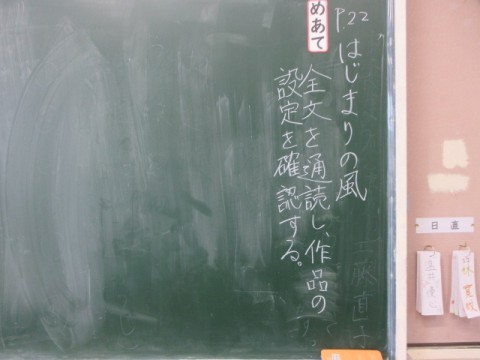 P.22
はじまりの風
めあて
全文を通読し、作品の
設定を確認する。
日直